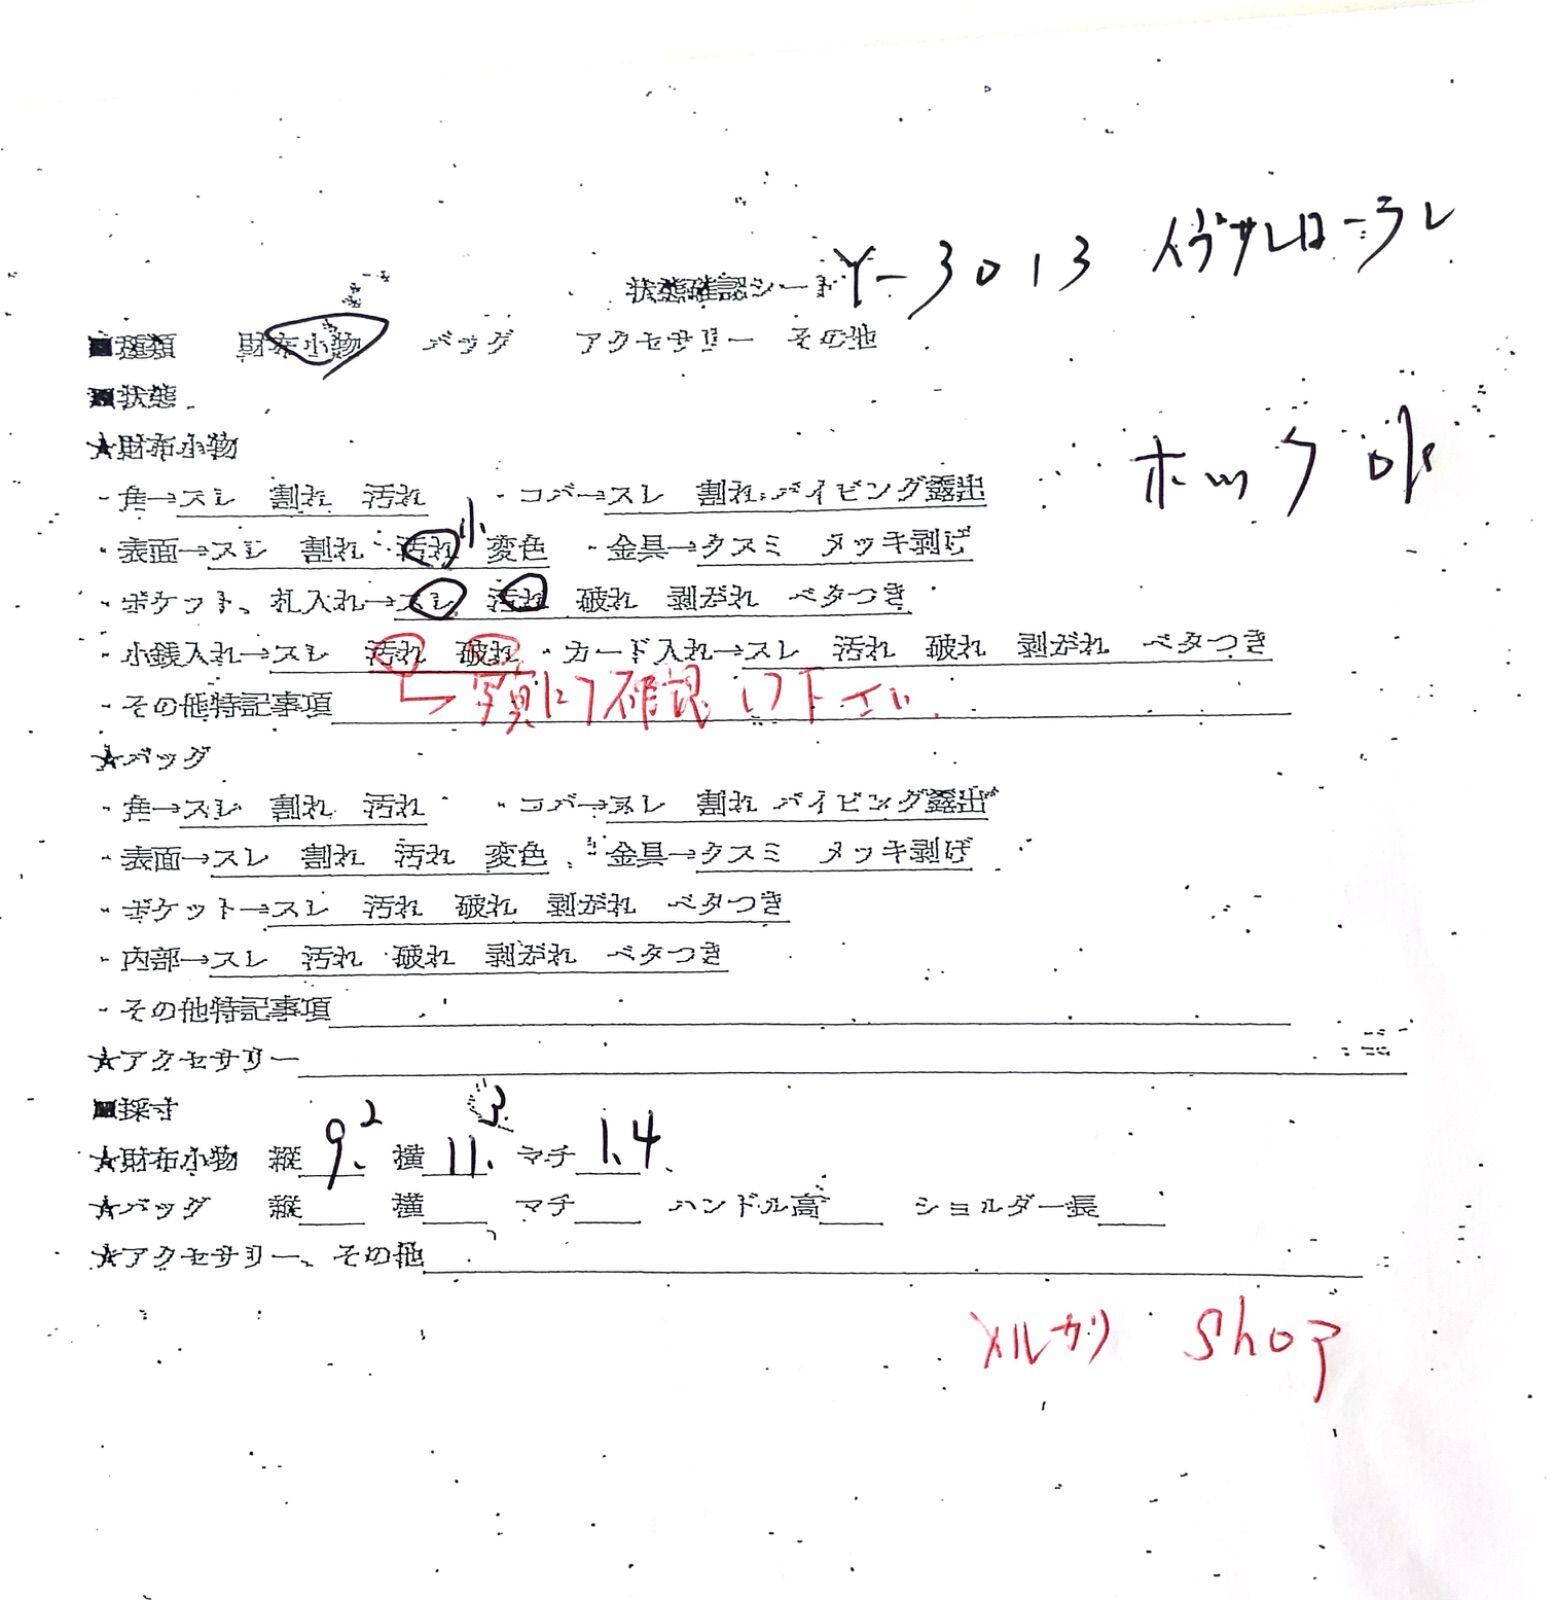 状態確認シート Y-3013 イヴサンローラン
■種類 財布小物 バッグ アクセサリー その他
■状態
★財布小物
ホック ok
・角→スレ 割れ 汚れ ・コバ→スレ 割れ パイピング露出
・表面→スレ 割れ 汚れ 小 変色 ・金具→クスミ メッキ剥げ
・ポケット、札入れ→スレ 汚れ 破れ 剥がれ ベタつき
・小銭入れ→スレ 汚れ 破れ ・カード入れ→スレ 汚れ 破れ 剥がれ ベタつき
・その他特記事項 写真にて確認して下さい。
★バッグ
・角→スレ 割れ 汚れ ・コバ→スレ 割れ パイピング露出
・表面→スレ 割れ 汚れ 変色 ・金具→クスミ メッキ剥げ
・ポケット→スレ 汚れ 破れ 剥がれ ベタつき
・内部→スレ 汚れ 破れ 剥がれ ベタつき
・その他特記事項
★アクセサリー
■採寸
★財布小物 縦 9.2 横 11.3 マチ 1.4
★バッグ 縦 横 マチ ハンドル高 ショルダー長
★アクセサリー、その他
メルカリ Shop